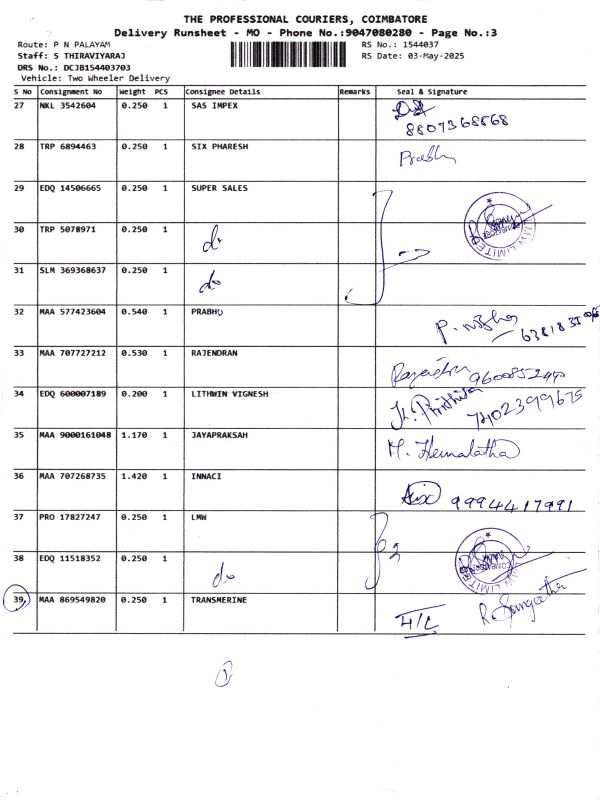 THE PROFESSIONAL COURIERS, COIMBATORE
Delivery Runsheet - MO - Phone No.:9047080280 - Page No.:3
Route: P N PALAYAM RS No.: 1544037
Staff: S THIRAVIYARAJ RS Date: 03-May-2025
DRS No.: DCJB154403703
Vehicle: Two Wheeler Delivery
S No Consignment No Weight PCS Consignee Details Remarks Seal & Signature
27 NKL 3542604 0.250 1 SAS IMPEX
8807368868
28 TRP 6894463 0.250 1 SIX PHARESH Prabhu
29 EDQ 14506665 0.250 1 SUPER SALES
30 TRP 5078971 0.250 1 do
31 SLM 369368637 0.250 1 do
32 MAA 577423604 0.540 1 PRABHO
33 MAA 707727212 0.530 1 RAJENDRAN Rajendran
34 EDQ 600007189 0.200 1 LITHWIN VIGNESH
7402399675
35 MAA 9000161048 1.170 1 JAYAPRAKSAH M. Hemalatha
36 MAA 707268735 1.420 1 INNACI
9994417991
37 PRO 17827247 0.250 1 LMW 2
38 EDQ 11518352 0.250 1 do
39 MAA 869549820 0.250 1 TRANSMERINE R. Sangeetha
1